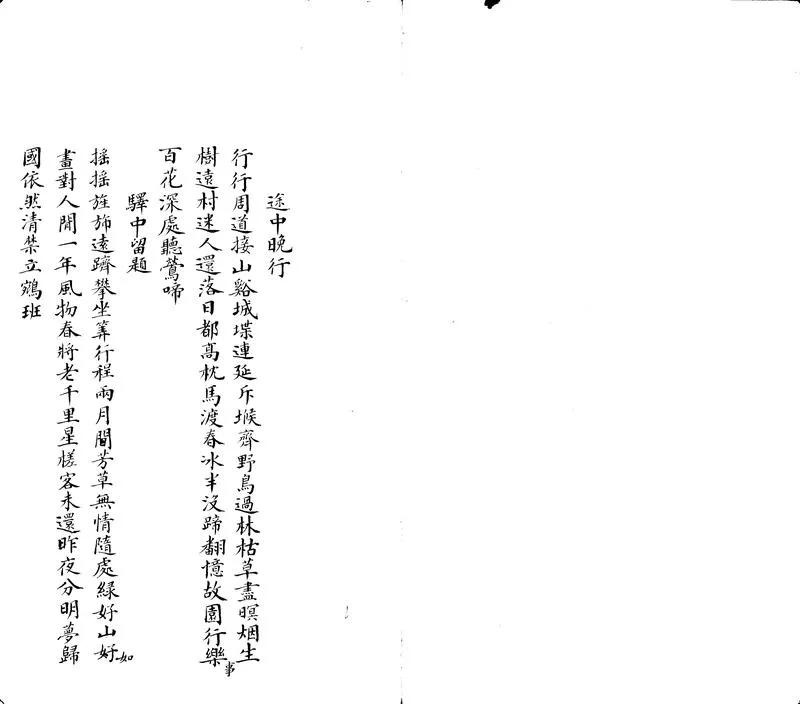 途中晚行
行行周道接山谿城堞連延斥堠齊野鳥過林枯草盡暝烟生
樹遠村迷人還落日都高枕馬渡春冰半沒蹄翻憶故園行樂事
百花深處聽鶯啼
驛中留題
搖搖旌斾遠躋攀坐筭行程兩月間芳草無情隨處綠好山好如
畫對人閒一年風物春將老千里星槎客未還昨夜分明夢歸
國依然清禁立鵷班